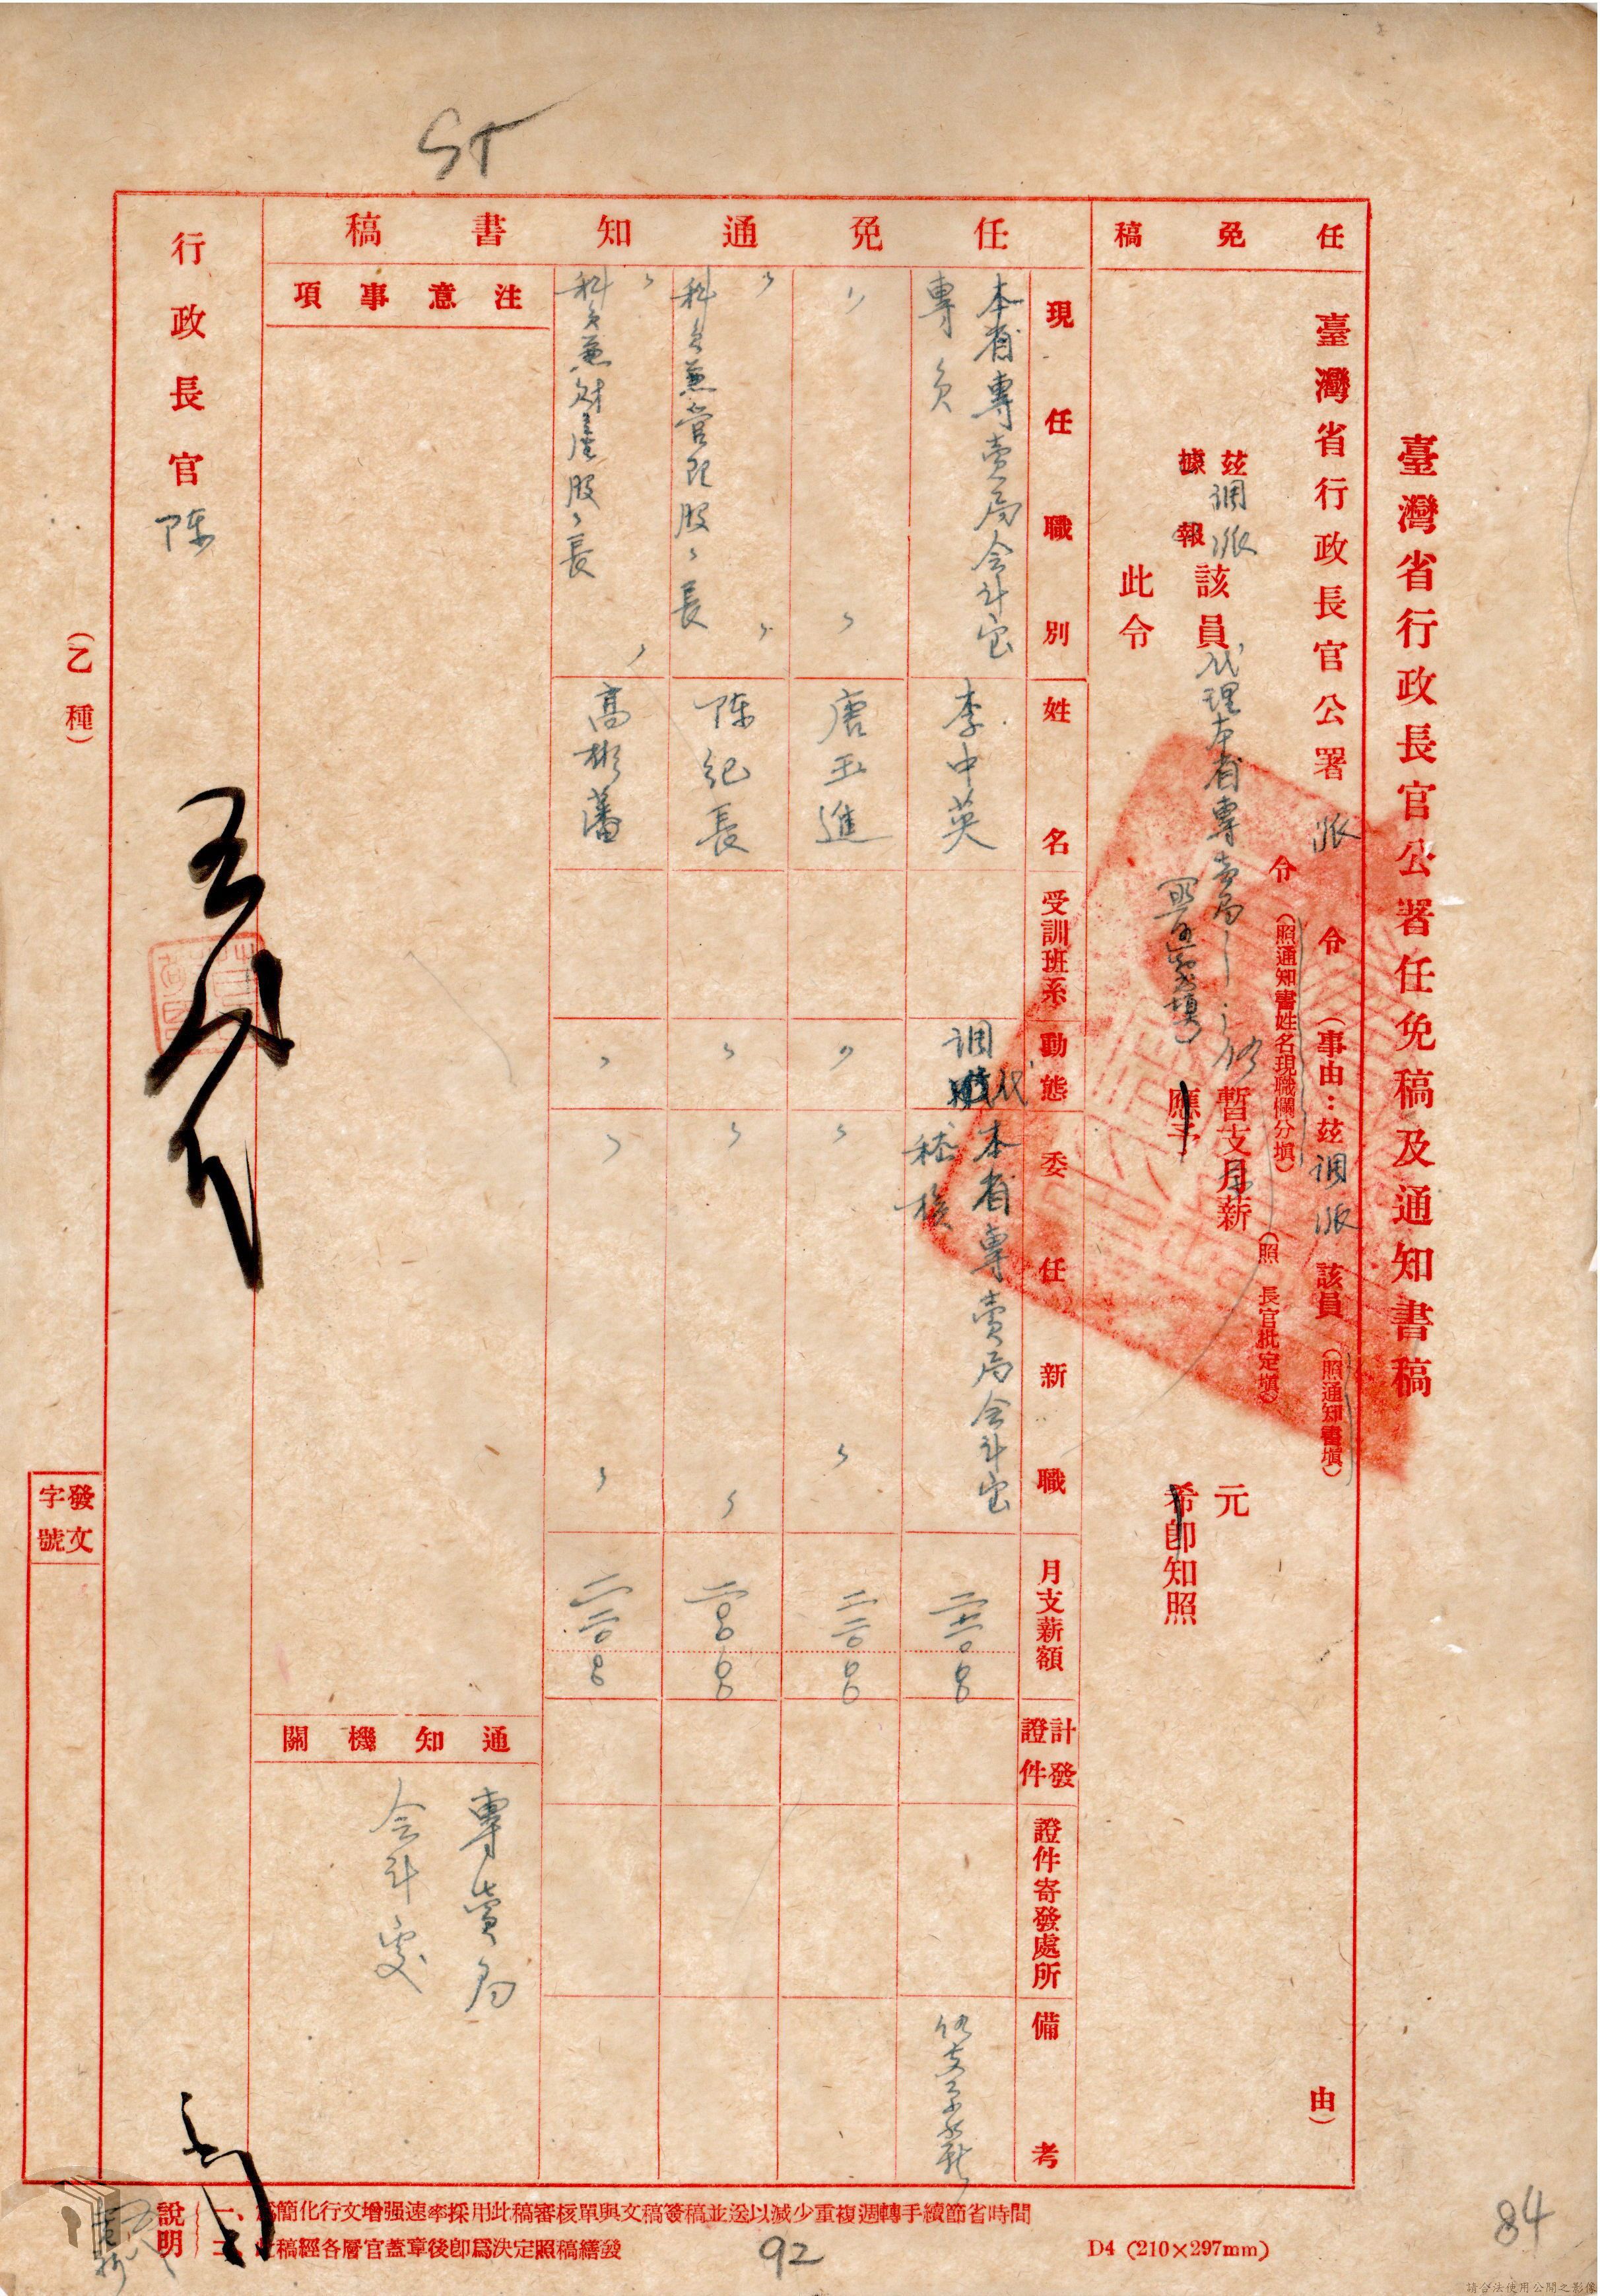 臺灣省行政長官公署任免稿及通知書稿
任免稿
臺灣省行政長官公署 派 令 (事由：茲 调派 該員 (照通知書填) 由)
令 (照通知書姓名現職欄分填)
茲 调派 該員 代理本省專賣局 暫支月薪 (照 長官批定填) 元
據報 應予 希卽知照
此令
任免通知書稿
現任職別
姓名
受訓班系
動態
委任新職
月支薪額
計發證件
證件寄發處所
備考
本省專賣局会计室
專员
李中英
调代
本省專賣局会计室
稽核
二六〇
〃 〃
唐玉進
〃
〃 〃
二二〇
〃
科员兼管理股〃長
陈紀長
〃
〃 〃
科员兼財產股〃長
高彬藩
〃
〃 〃
二二〇
注意事項
通知機關
專賣局
会计处
行政長官 陈
(乙種)
發文字號
說明
一、爲簡化行文增强速率採用此稿審核單與文稿簽稿並送以減少重複週轉手續節省時間
二、此稿經各層官蓋章後卽爲決定照稿繕發
D4 (210×297mm)
92
84
請合法使用公開之影像